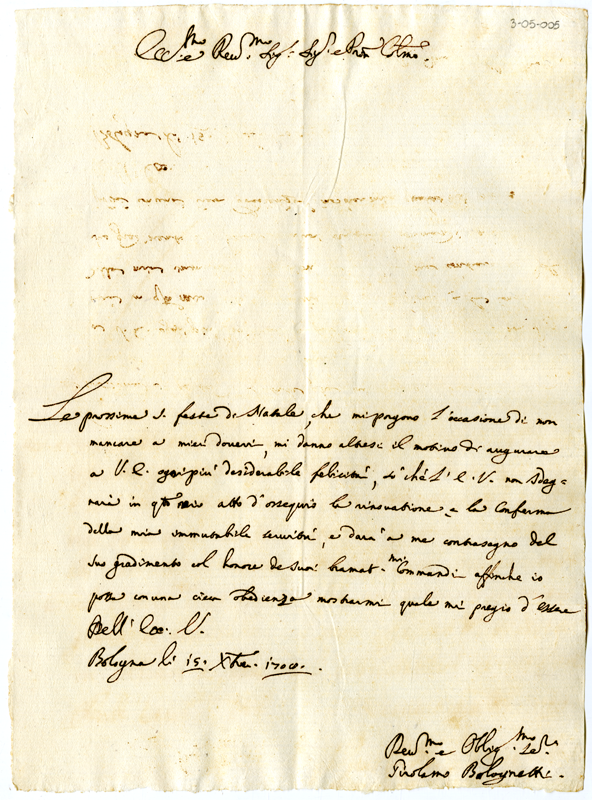 3-05-005
Ecc:mo e Rev:mo Sig:r Sig:r e Pron Colmo.
Le prossime S. feste di Natale, che mi porgono l'occasione di non
mancare a miei doveri, mi danno altresi il motivo di augurare
a V. E. ogni più desiderabile felicità, L' E. V. non sdeg-
nerà in qto mio atto d'ossequio la rinovatione, e la conferma
della mia immutabile servitù, e darà a me contrasegno del
suo gradimento col honore de suoi bramat.mi Commandi affinche io
possa con una cieca obedienza mostrarmi quale mi pregio d'essere
Dell' Ecc. V.
Bologna li 15. Xbre. 1700.
Rev:mo e Oblig:mo Ser:
Girolamo Bolognetti.